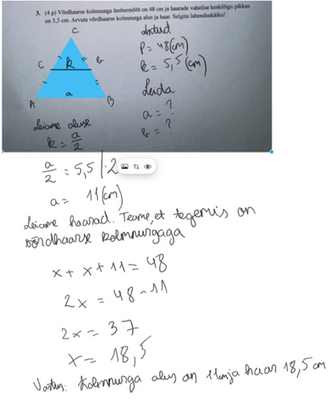 3. (4 p) Võrdhaarse kolmnurga ümbermõõt on 48 cm ja haarade vahelise kesklõigu pikkus
on 5,5 cm. Arvuta võrdhaarse kolmnurga alus ja haar. Selgita lahenduskäiku!
C
C k b
a
A B
Antud
P = 48(cm)
k = 5,5 (cm)
Leida
a = ?
b = ?
Leiame aluse
k = a/2
a/2 = 5,5 | · 2
a = 11(cm)
Leiame haarad. Teame, et tegemis on
võrdhaarse kolmnurgaga
x + x + 11 = 48
2x = 48 - 11
2x = 37
x = 18,5
Vastus: Kolmnurga alus on 11 cm ja haar 18,5 cm